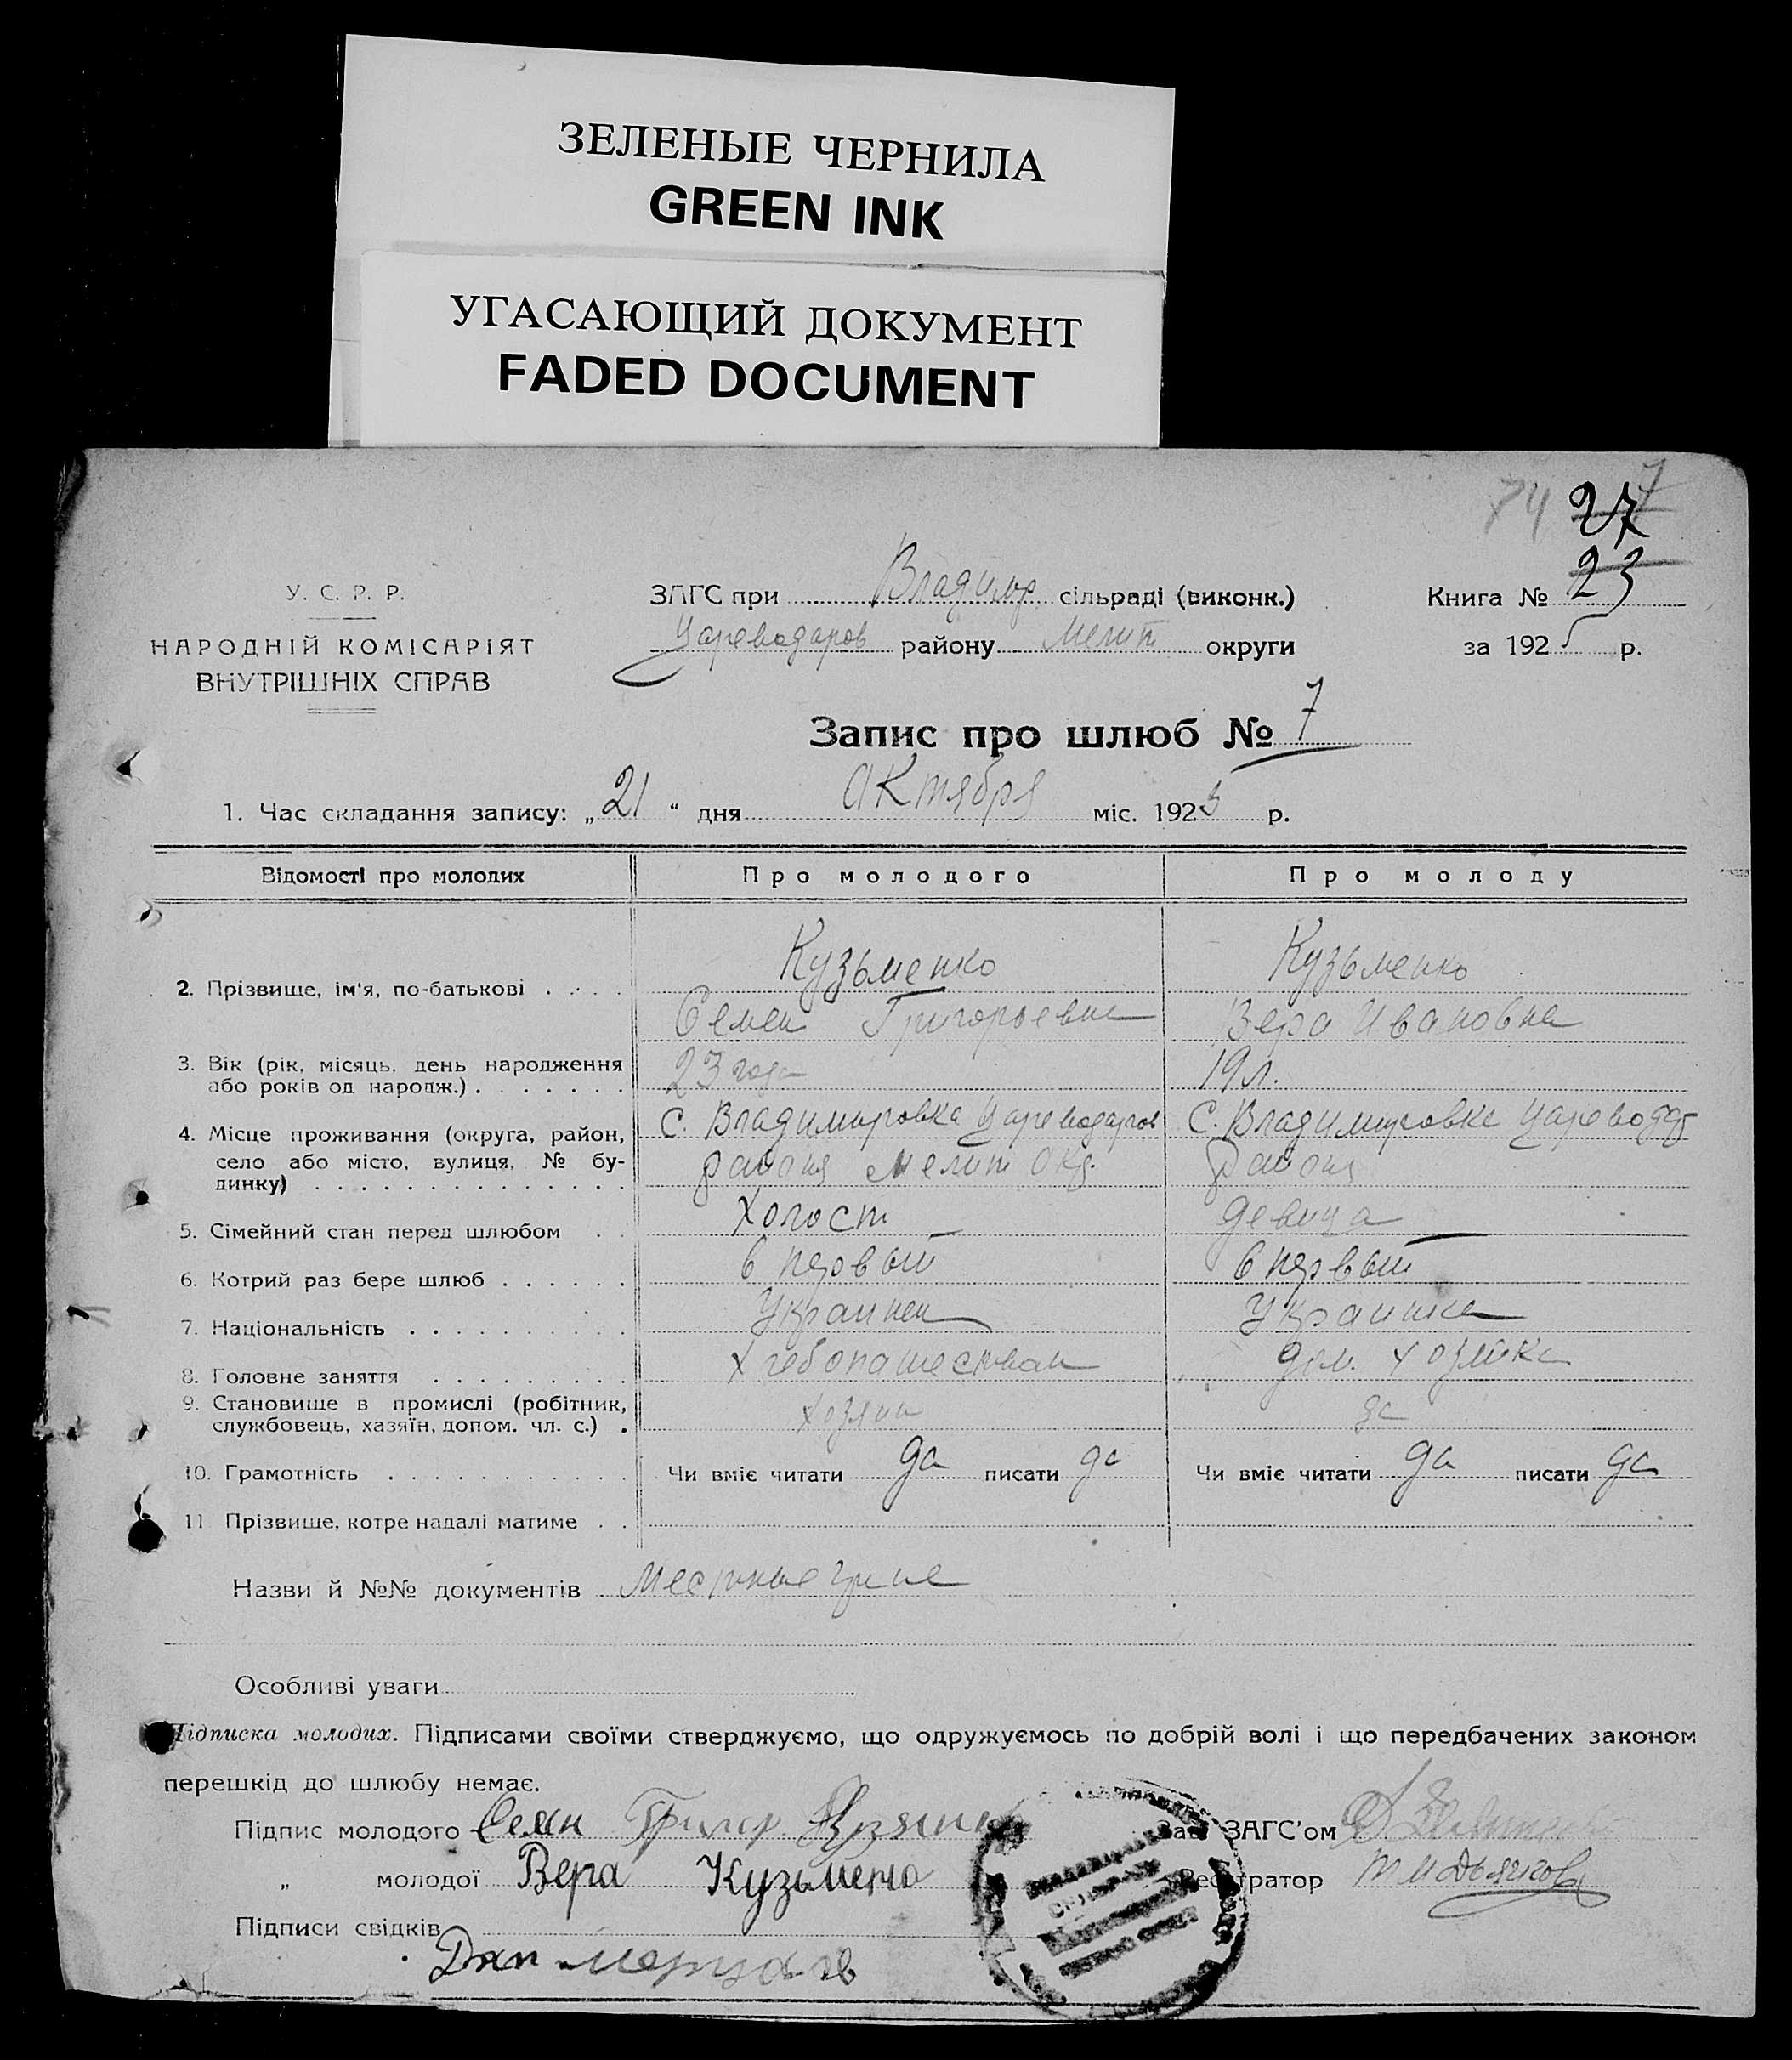 ЗЕЛЕНЫЕ ЧЕРНИЛА
GREEN INK
УГАСАЮЩИЙ ДОКУМЕНТ
FADED DOCUMENT
74 27 7
23
У. С. Р. Р.
НАРОДНІЙ КОМІСАРІЯТ
ВНУТРІШНІХ СПРАВ
ЗАГС при Владимр сільраді (виконк.)
Цареводаров району Мелит округи
Книга №
за 1925 р.
Запис про шлюб № 7
1. Час складання запису: „21“ дня Октября міс. 1925 р.
Відомості про молодих Про молодого Про молоду
2. Прізвище, ім'я, по-батькові . . . . Кузьменко Кузьменко
Семен Григорьевич Вера Ивановна
3. Вік (рік, місяць, день народження або років од народж.) . . . . . . . 23 года 19 л.
4. Місце проживання (округа, район, село або місто, вулиця, № будинку) . . . . . . . . . . . . . . С. Владимировка Цареводаров С. Владимировке Цареводар
района Мелит окр. района
5. Сімейний стан перед шлюбом . . холост девица
6. Котрий раз бере шлюб . . . . . . в первый в первый
7. Національність . . . . . . . . . . Украинец Украинка
8. Головне заняття . . . . . . . . . Хлебопашеством дом. хозяйка
9. Становище в промислі (робітник, службовець, хазяїн, допом. чл. с.) . хозяин да
10. Грамотність . . . . . . . . . . . Чи вміє читати да писати да Чи вміє читати да писати да
11 Прізвище, котре надалі матиме . .
Назви й №№ документів Местные
Особливі уваги
Підписка молодих. Підписами своїми стверджуємо, що одружуємось по добрій волі і що передбачених законом
перешкід до шлюбу немає.
Підпис молодого Семен Григор Зав. ЗАГС'ом
„ молодої Вера Кузьменко Реєстратор
Підписи свідків